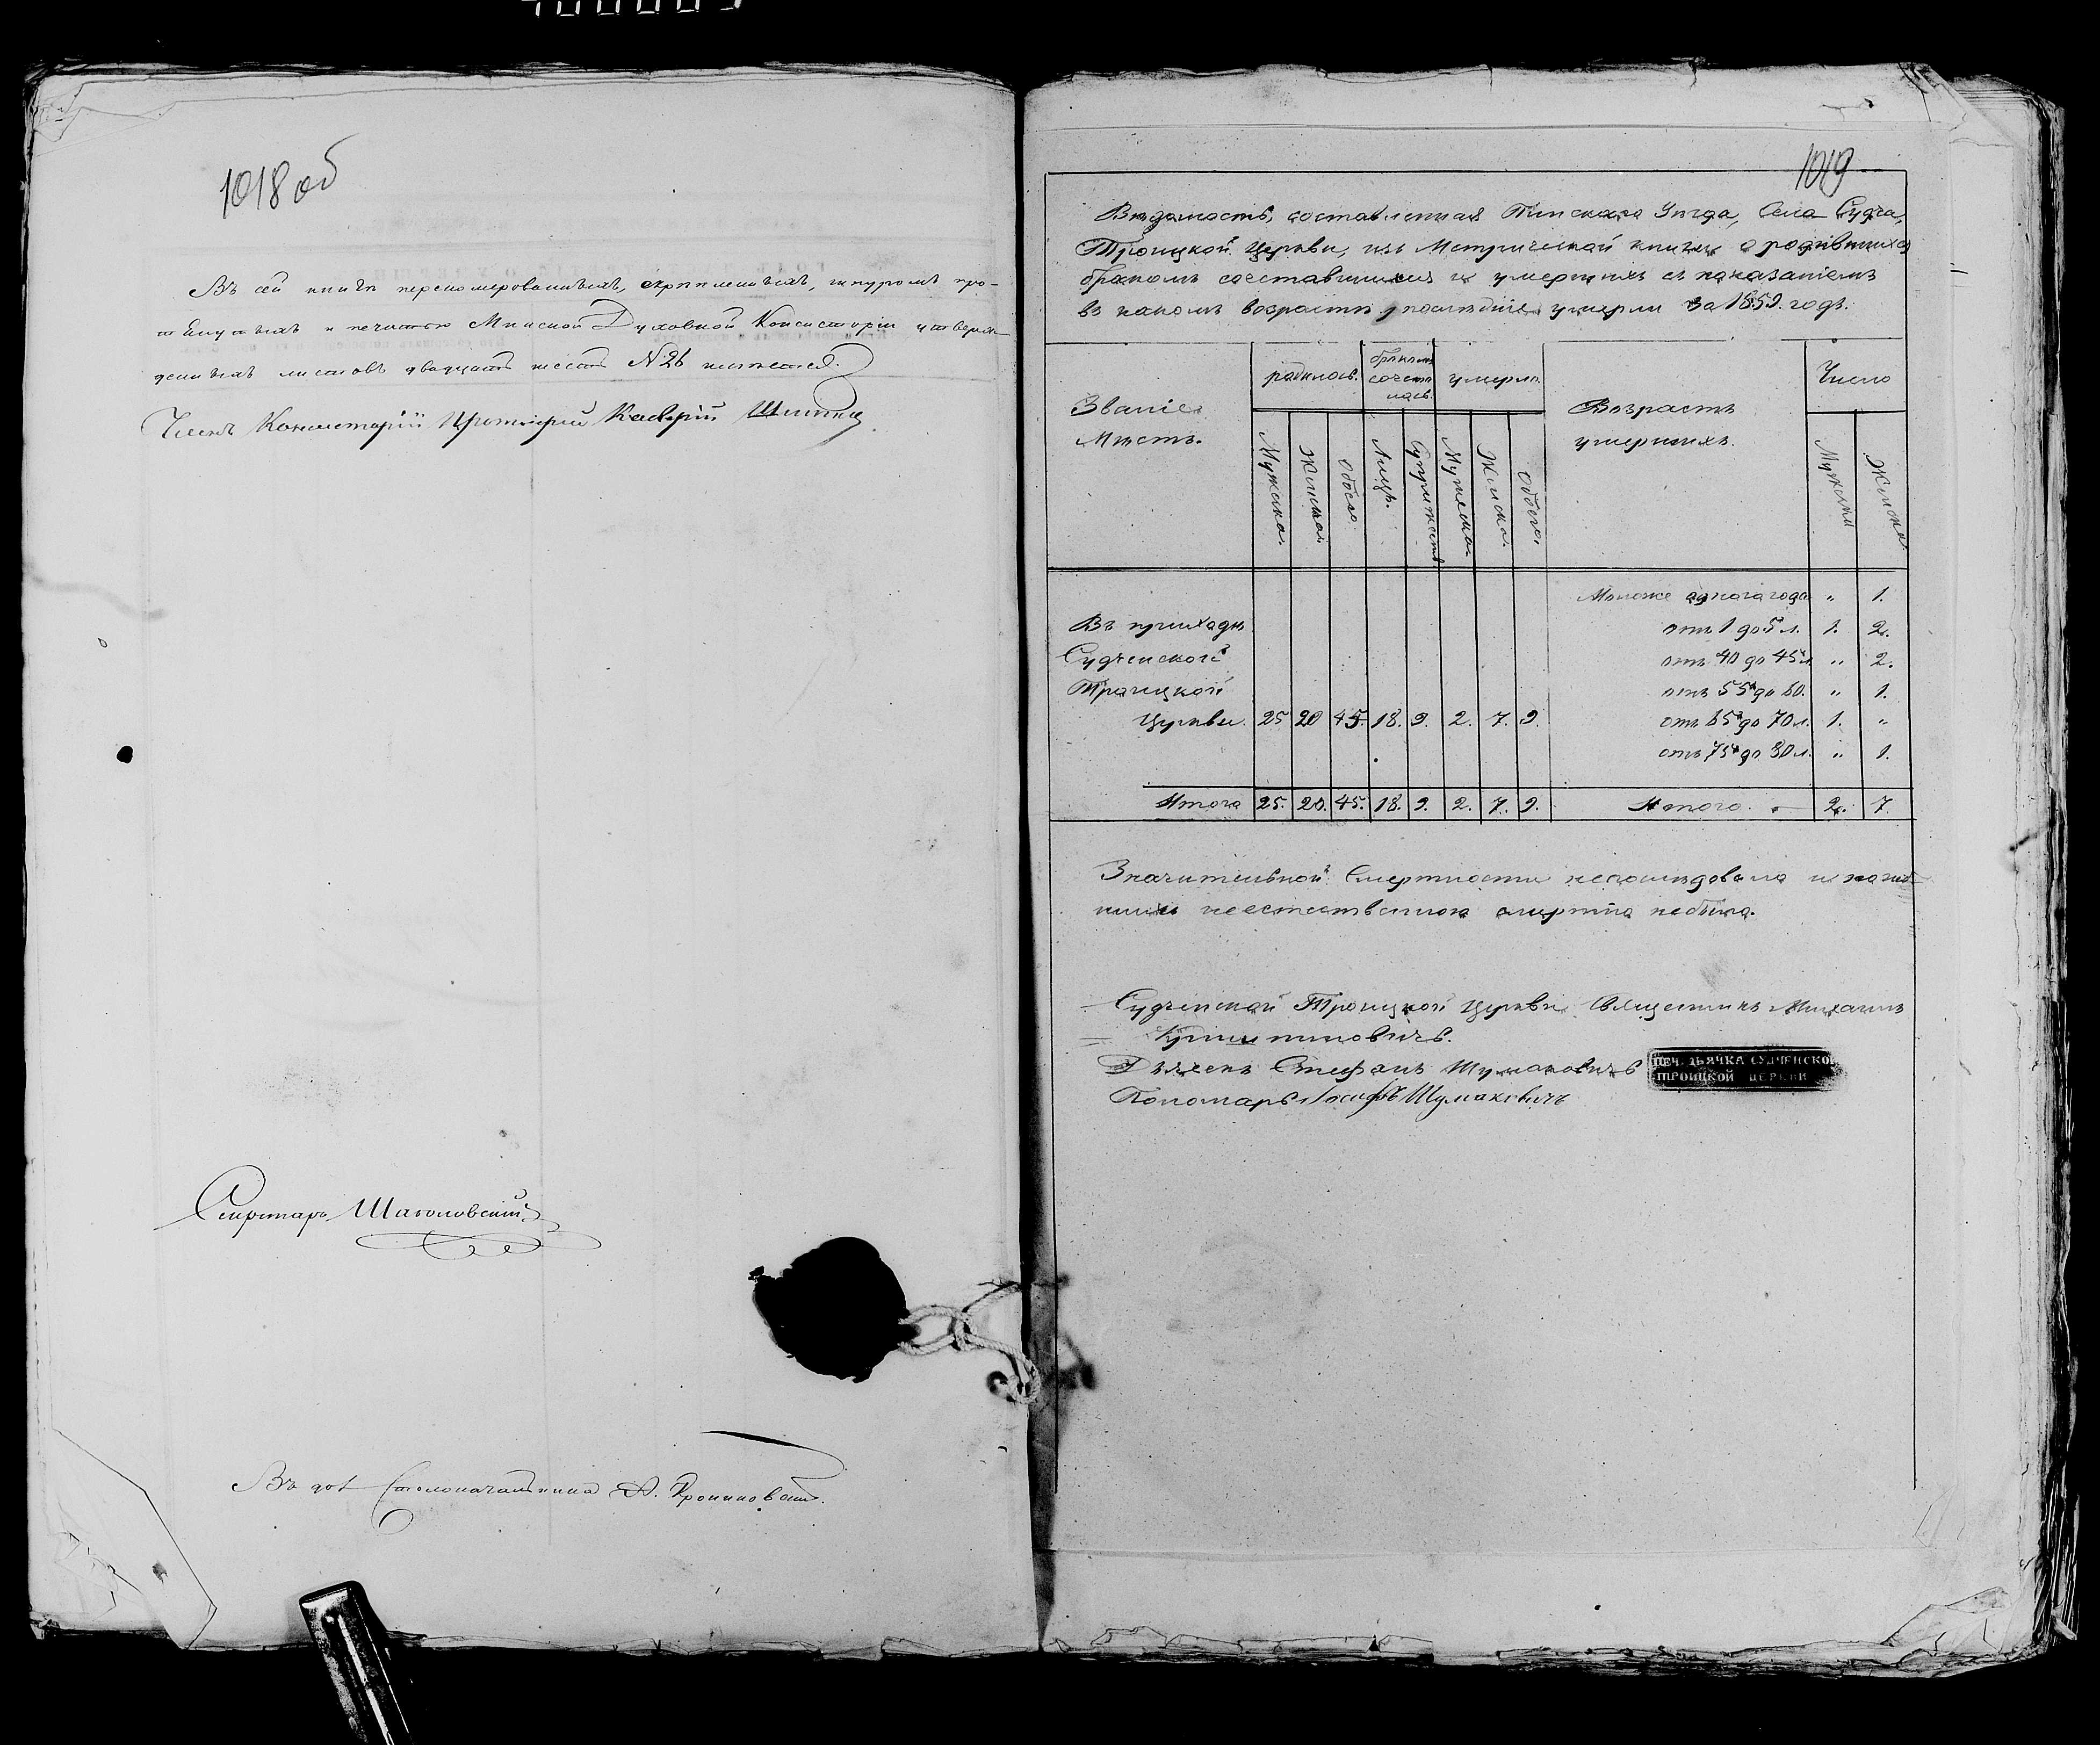 1018 об
Въ сей книгѣ перенумерованныхъ, скрѣпленныхъ, шнуромъ про-
шнутыхъ и печатью Минской Духовной Консисторіи утверж-
денныхъ листовъ двадцать шесть N 26 имѣется.
Членъ Консисторіи Протоіерей Каверій
Секретарь
Столоначальника
1019
Вѣдомость, составленная Пинскаго Уѣзда, Села Судча,
Троицкой Церкви, изъ Метрической книги о родившихся
бракомъ сочетавшихся и умершихъ съ показаніемъ
въ какомъ возрастѣ послѣдніе умерли за 1859. годъ.
Званіе Мѣстъ. родилось. бракомъ сочета лось. умерло. Возрастъ умершихъ. Число
Мужска. Женска. Обоего Лицъ. Супружествъ Мужска. Женска. Обоего. Мужска Женска.
Моложе одного года „ 1.
Въ приходѣ отъ 1 до 5 л. 1. 2.
Судченской отъ 40 до 45 л. „ 2.
Троицкой отъ 55 до 60. „ 1.
Церкви. 25 20 45. 18. 9. 2. 7. 9. отъ 65 до 70 л. 1. „
отъ 75 до 80 л. „ 1.
Итого 25. 20. 45. 18. 9. 2. 7. 9. Итого. 2. 7.
Значительной Смертности непослѣдовало и
неестественною смертію небыло.
Судченской Троицкой Церкви Священникъ Михаилъ
Дьячекъ Стефанъ Шумаковичъ
ПЕЧ. ДЬЯЧКА СУДЧЕНСКОЙ
ТРОИЦКОЙ ЦЕРКВИ
Пономарь Іосифъ Шумаковичъ